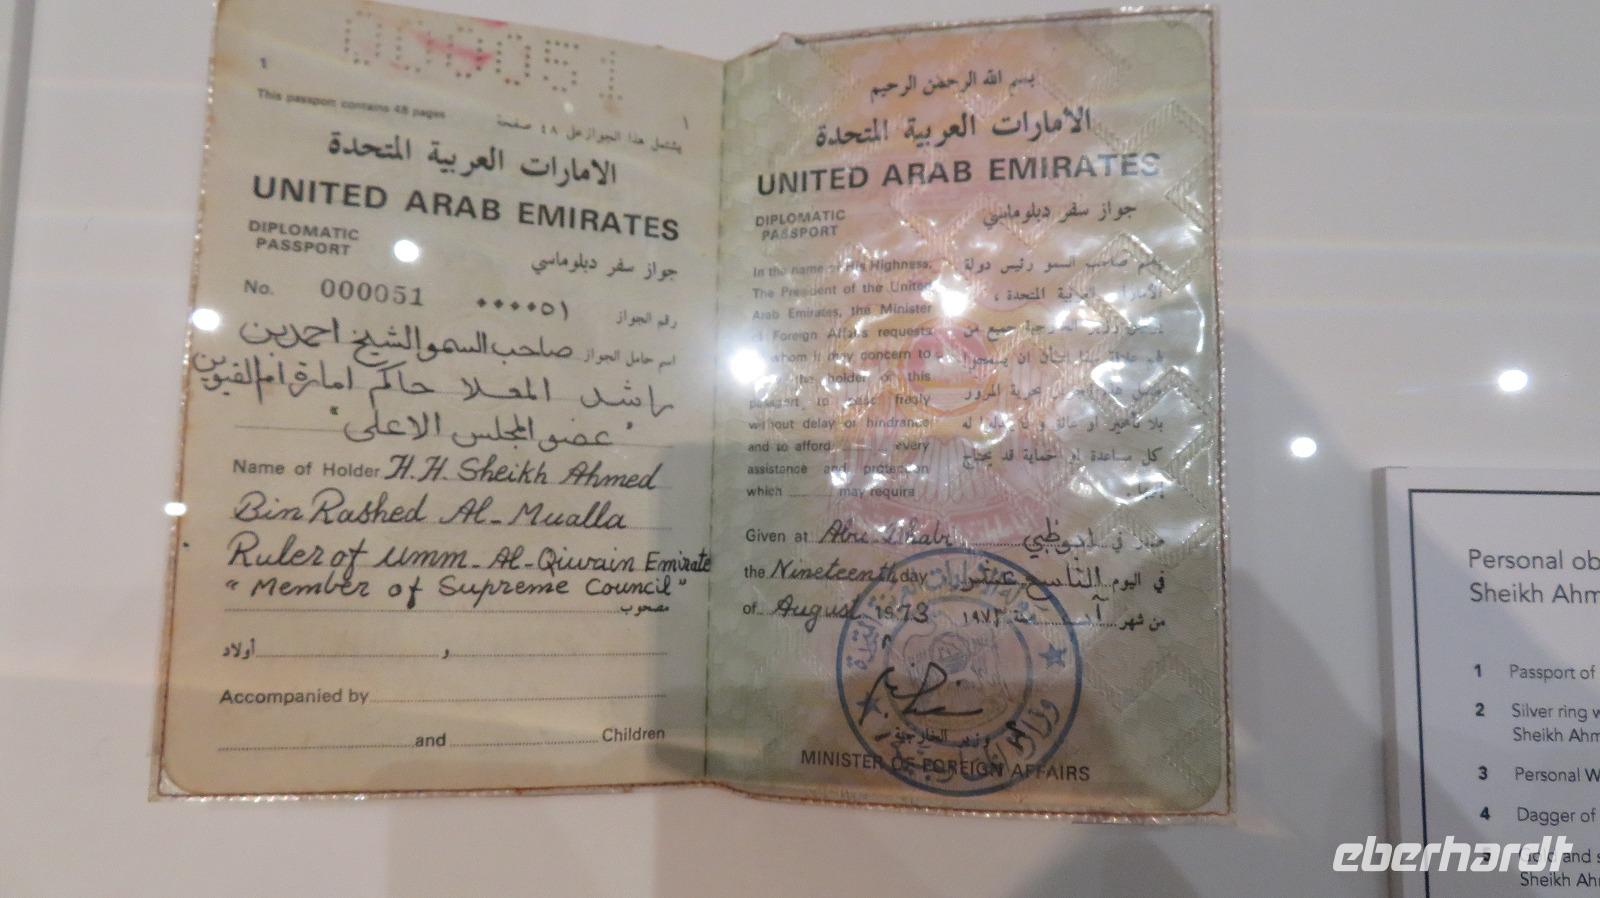 000051
1
This passport contains 48 pages
يشتمل هذا الجواز على ٤٨ صفحة
١
الامارات العربية المتحدة
UNITED ARAB EMIRATES
DIPLOMATIC
PASSPORT
جواز سفر دبلوماسي
No. 000051 ٠٠٠٠٥١ رقم الجواز
اسم حامل الجواز صاحب السمو الشيخ احمد بن
راشد المعلا حاكم امارة ام القيوين
"عضو المجلس الاعلى"
Name of Holder H.H. Sheikh Ahmed
Bin Rashed Al-Mualla
Ruler of Umm-Al-Qiwain Emirate
"Member of Supreme Council"
مصحوب
و أولاد
Accompanied by
and Children
بسم الله الرحمن الرحيم
الامارات العربية المتحدة
UNITED ARAB EMIRATES
DIPLOMATIC
PASSPORT
جواز سفر دبلوماسي
In the name of His Highness,
The President of the United
Arab Emirates, the Minister
of Foreign Affairs requests
whom it may concern to
the holder of this
passport to pass freely
without delay or hindrance
and to afford every
assistance and protection
which may require
صاحب السمو رئيس دولة
الامارات العربية المتحدة ،
وزير الخارجية جميع من
ان يسمحوا
حرية المرور
بلا تأخير او عائق و له
كل مساعدة او حماية قد يحتاج
Given at Abu Dhabi
في ابوظبي
the Nineteenth day
في اليوم التاسع عشر
of August 1973
من شهر آب سنة ١٩٧٣
وزير الخارجية
MINISTER OF FOREIGN AFFAIRS
Personal
Sheikh
1 Passport of
2 Silver ring
Sheikh
3 Personal
4 Dagger of
5 Gold and
Sheikh
eberhardt